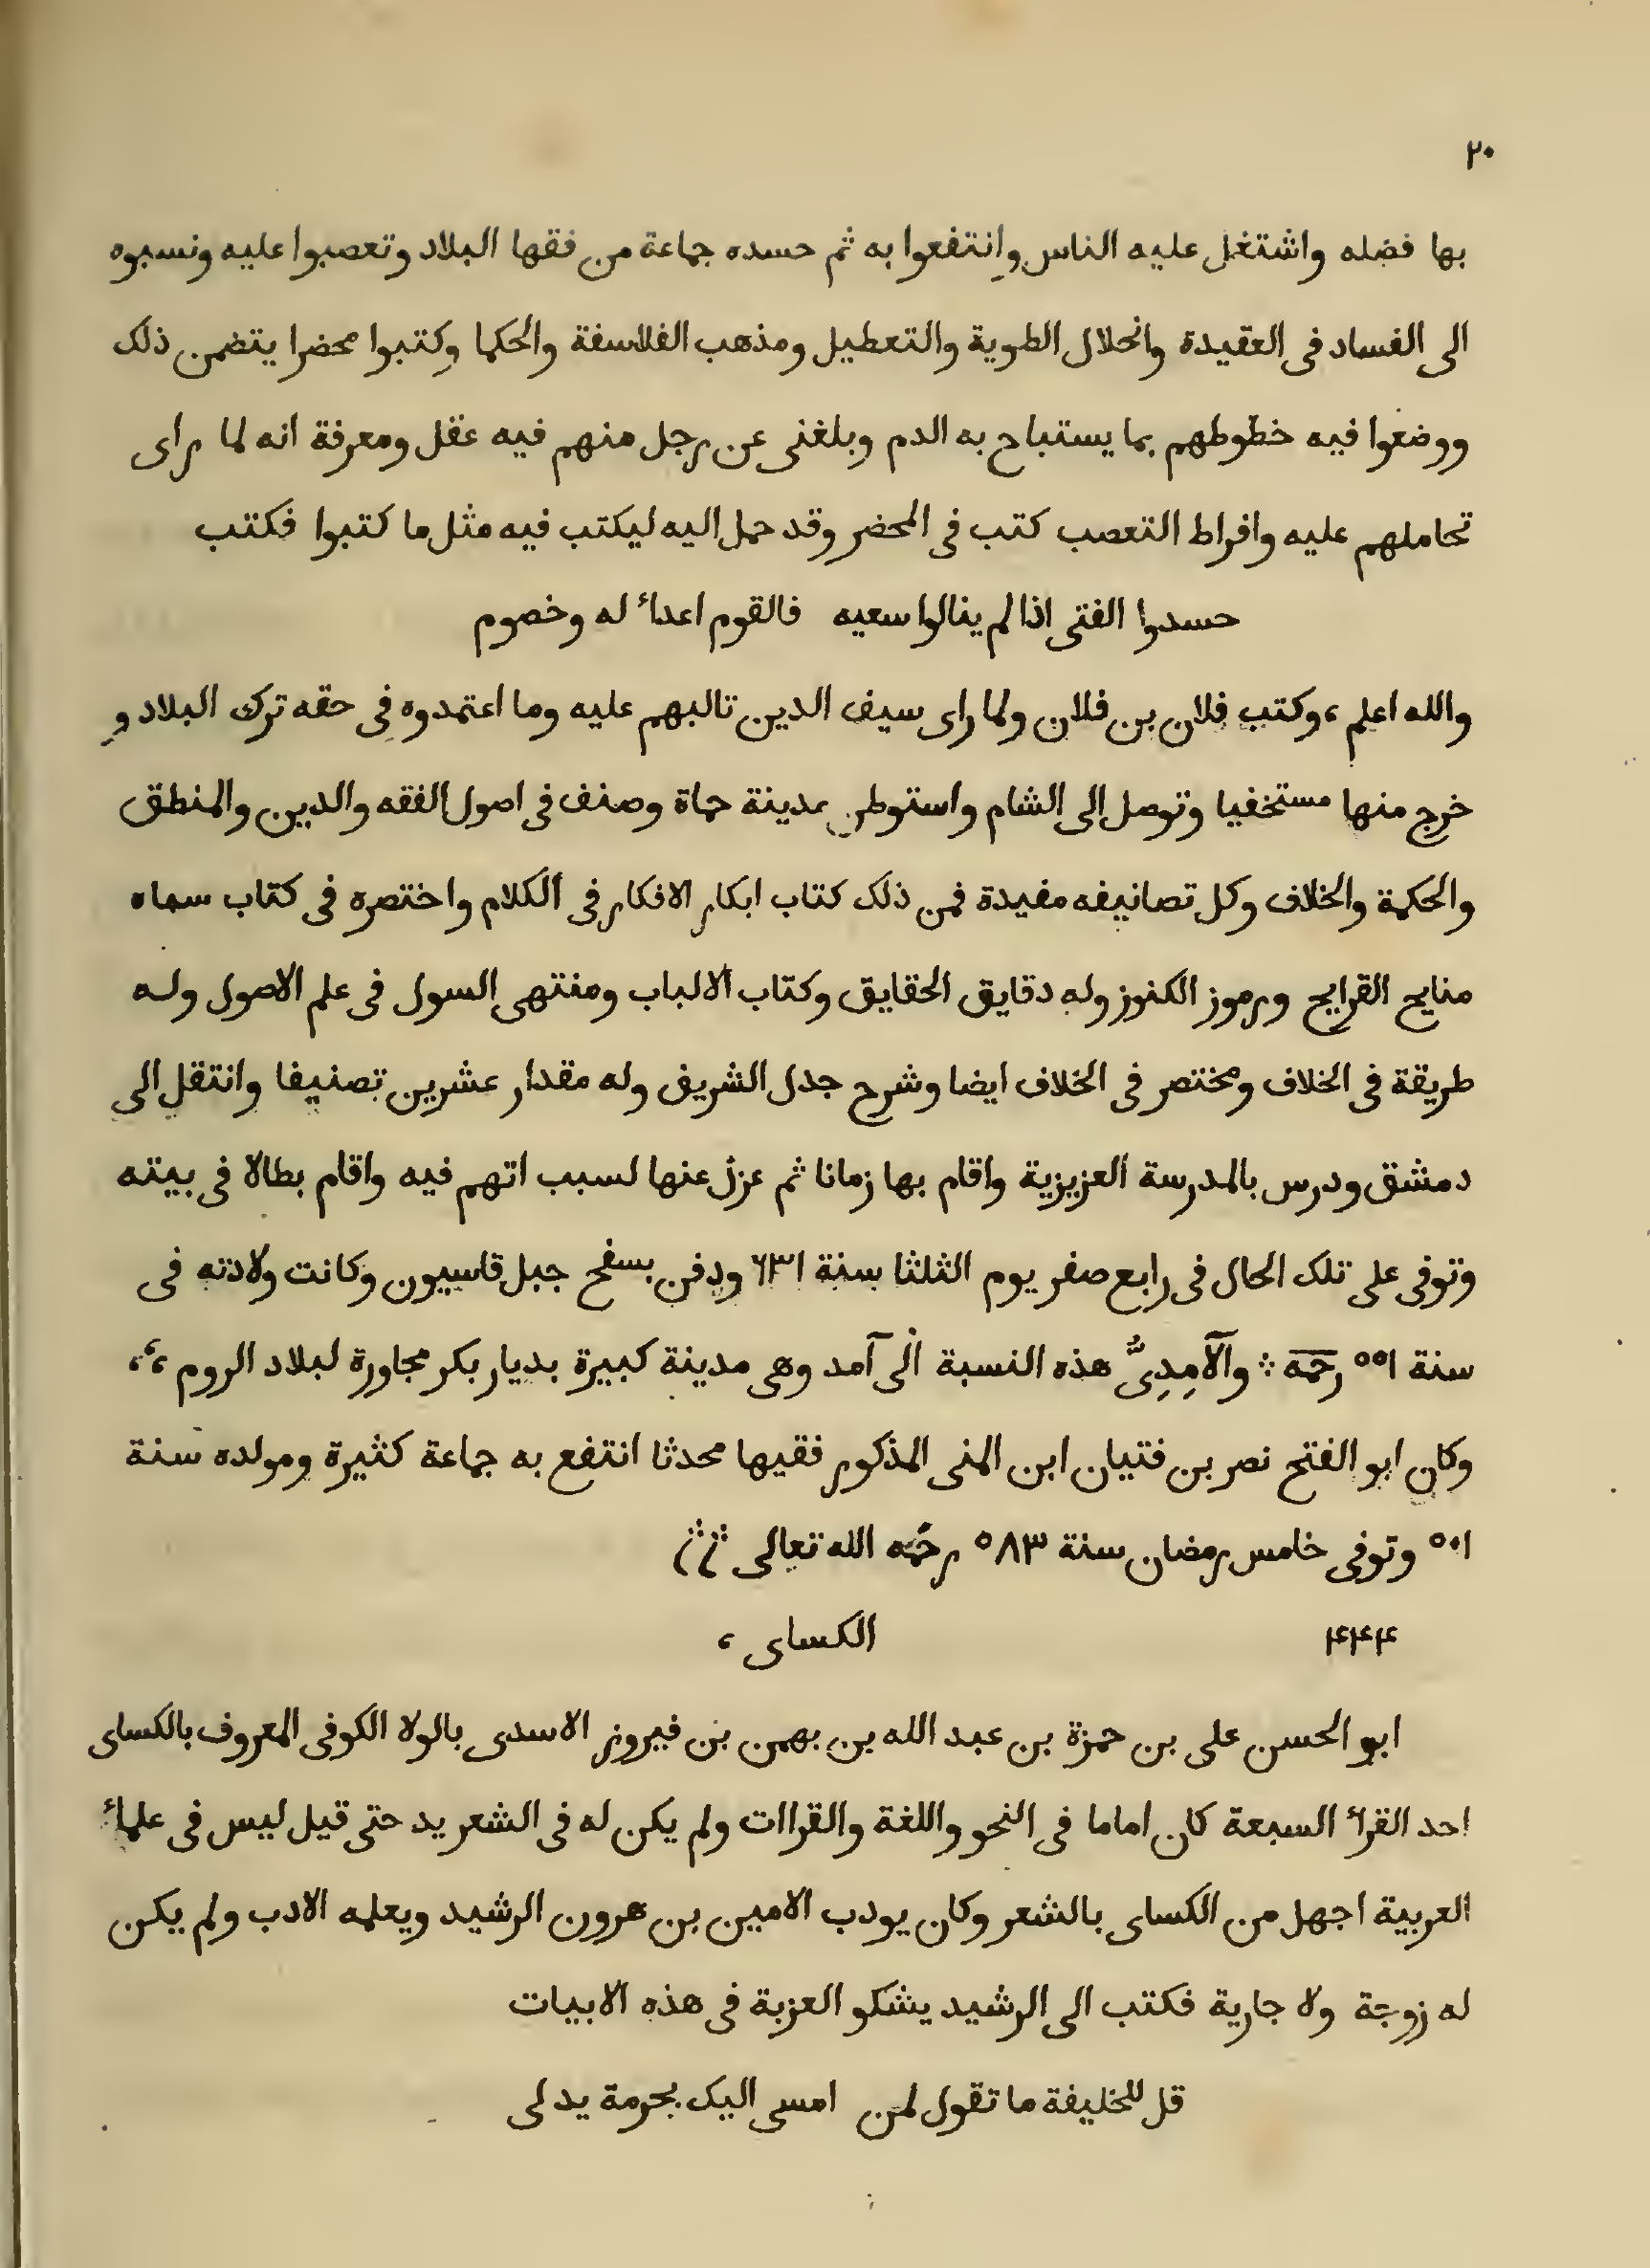 ٢٠
بها فضله واشتغل عليه الناس وانتفعوا به ثم حسده جماعة من فقها البلاد وتعصبوا عليه ونسبوه
الى الفساد فى العقيدة وانحلال الطوية والتعطيل ومذهب الفلاسفة والحكما وكتبوا محضرا يتضمن ذلك
ووضعوا فيه خطوطهم بما يستباح به الدم وبلغنى عن رجل منهم فيه عقل ومعرفة انه لما راى
تحاملهم عليه وافراط التعصب كتب فى المحضر وقد حمل اليه ليكتب فيه مثل ما كتبوا فكتب
حسدوا الفتى اذا لم ينالوا سعيه فالقوم اعداء له وخصوم
والله اعلم، وكتب فلان بن فلان ولما راى سيف الدين تالبهم عليه وما اعتمدوه فى حقه ترك البلاد و
خرج منها مستخفيا وتوصل الى الشام واستوطن بمدينة حماة وصنف فى اصول الفقه والدين والمنطق
والحكمة والخلاف وكل تصانيفه مفيدة فمن ذلك كتاب ابكار الافكار فى الكلام واختصره فى كتاب سماه
منايح القرايح ورموز الكنوز وله دقايق الحقايق وكتاب الالباب ومنتهى السول فى علم الاصول وله
طريقة فى الخلاف ومختصر فى الخلاف ايضا وشرح جدل الشريف وله مقدار عشرين تصنيفا وانتقل الى
دمشق ودرس بالمدرسة العزيزية واقام بها زمانا ثم عزل عنها لسبب اتهم فيه واقام بطالا فى بيته
وتوفى على تلك الحال فى رابع صفر يوم الثلثا سنة ٦٣١ ودفن بسفح جبل قاسيون وكانت ولادته فى
سنة ٥٥١ رحمه ∴ والآمِدِىُّ هذه النسبة الى آمد وهى مدينة كبيرة بديار بكر مجاورة لبلاد الروم،،،
وكان ابو الفتح نصر بن فتيان ابن المنى المذكور فقيها محدثا انتفع به جماعة كثيرة ومولده سنة
٥٠١ وتوفى خامس رمضان سنة ٥٨٣ رحمه الله تعالى
٤٤٤ الكساى،
ابو الحسن على بن حمزة بن عبد الله بن بهمن بن فيروز الاسدى بالولا الكوفى المعروف بالكساى
احد القراء السبعة كان اماما فى النحو واللغة والقراات ولم يكن له فى الشعر يد حتى قيل ليس فى علماء
العربية اجهل من الكساى بالشعر وكان يودب الامين بن هرون الرشيد ويعلمه الادب ولم يكن
له زوجة ولا جارية فكتب الى الرشيد يشكو العزبة فى هذه الابيات
قل للخليفة ما تقول لمن امسى اليك بحرمة يدلى